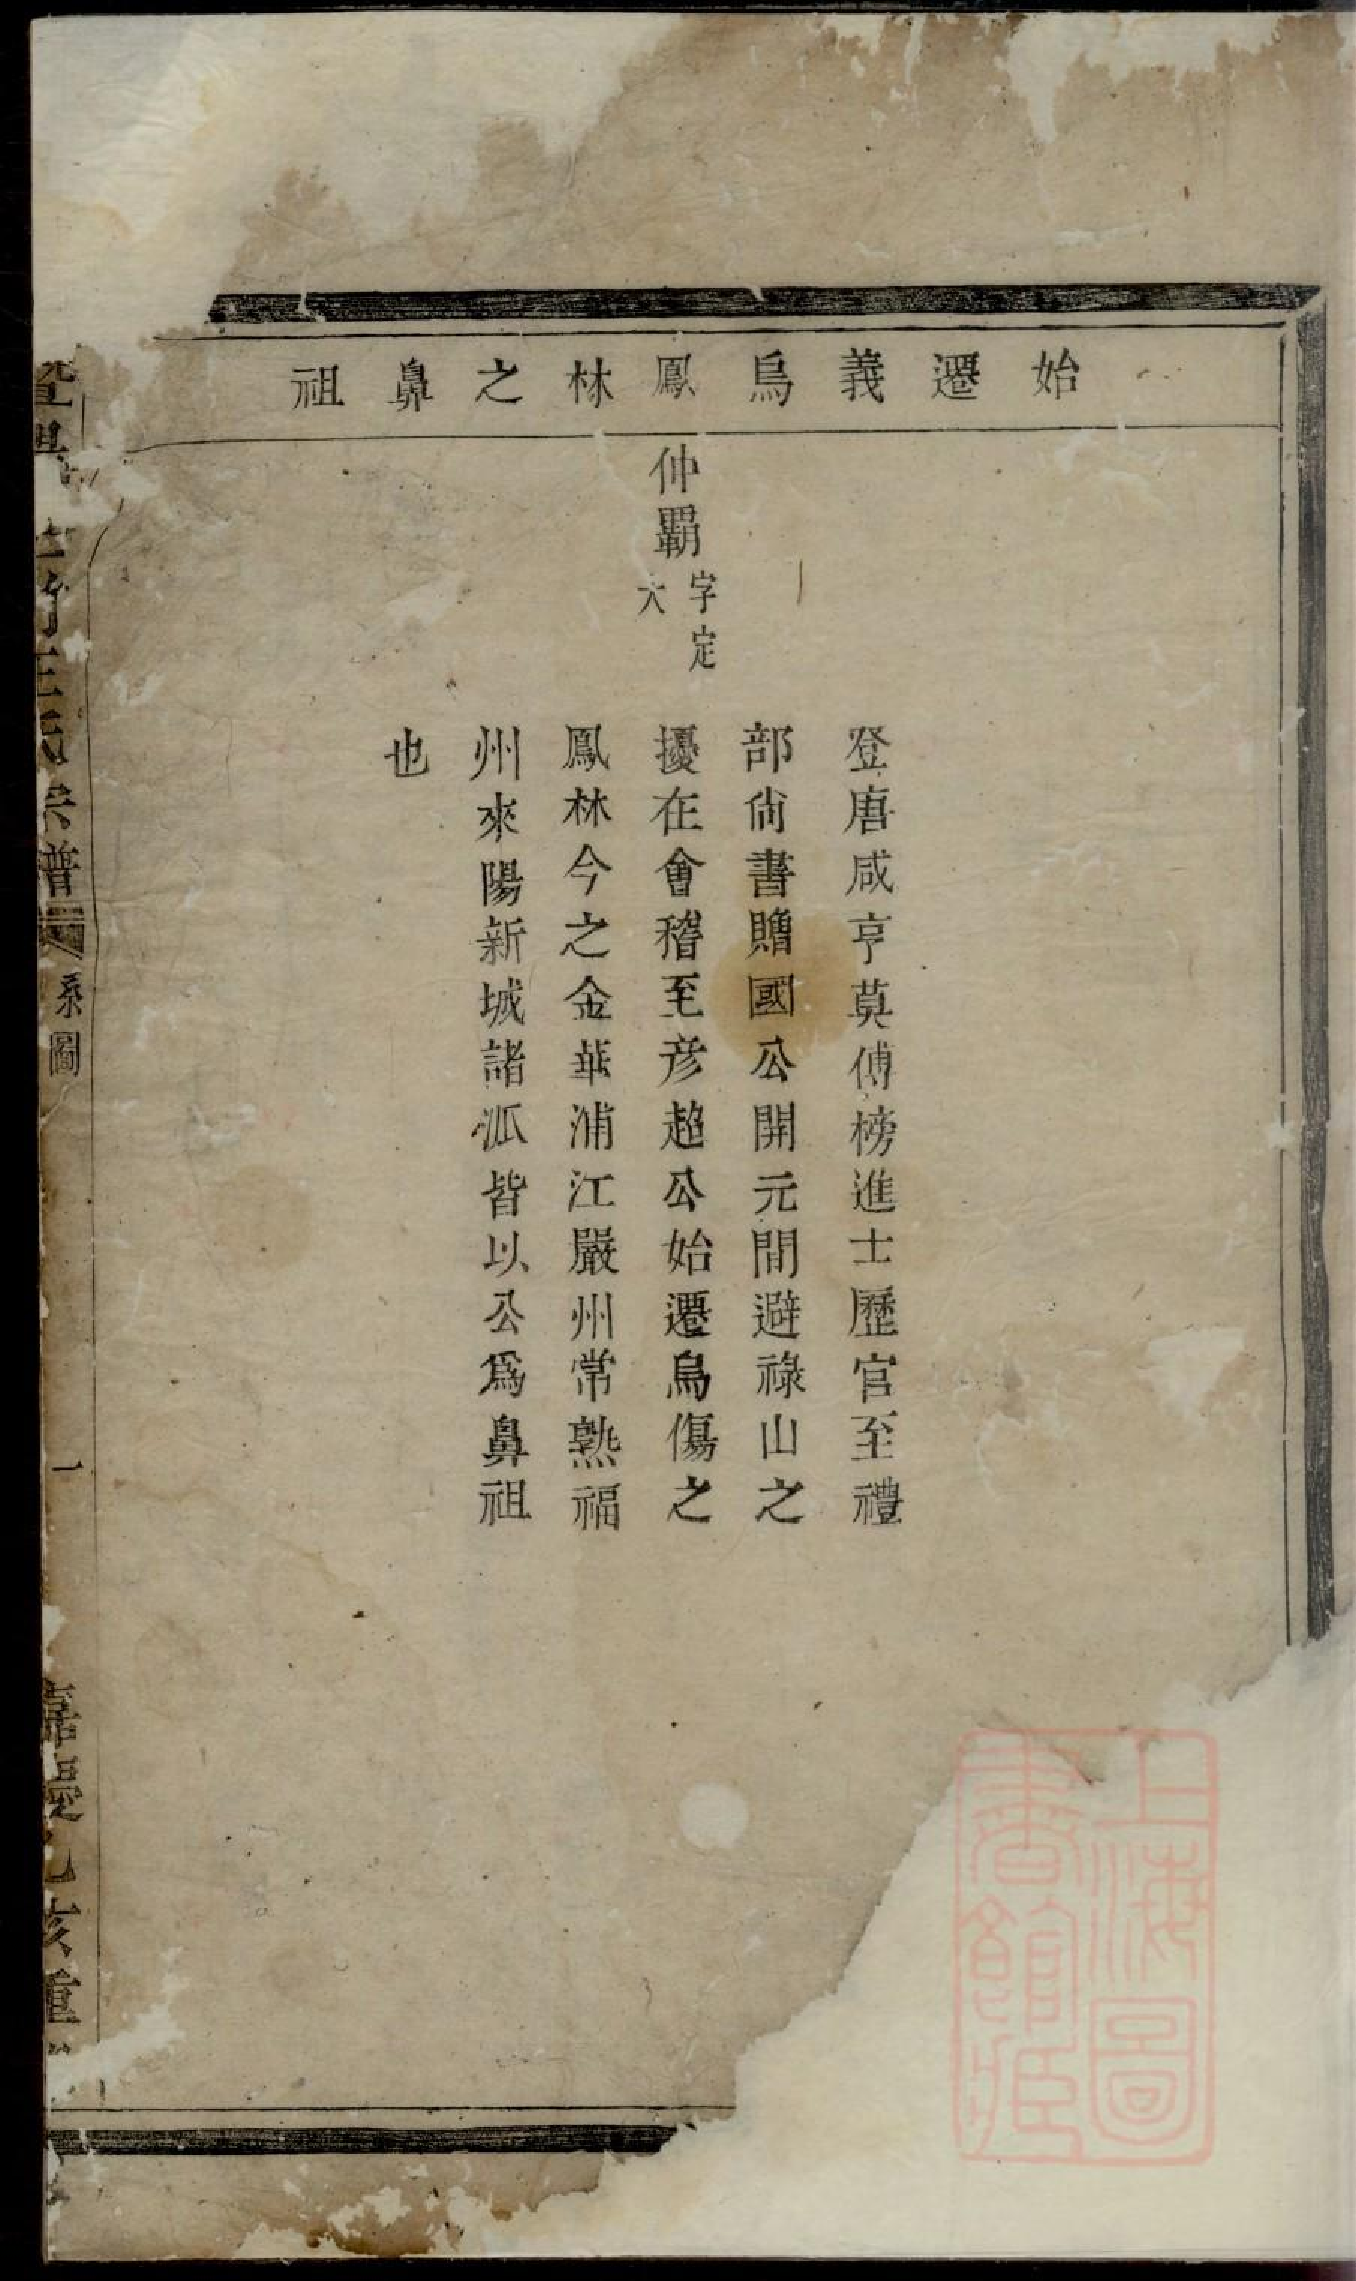 始遷義烏鳳林之鼻祖
仲覇
字定
大
登唐咸亨莫傅榜進士歷官至禮
部尙書贈國公開元間避祿山之
擾在會稽至彦超公始遷烏傷之
鳳林今之金華浦江嚴州常熟福
州來陽新城諸派皆以公爲鼻祖
也
王氏宗譜
系圖
一
嘉慶乙亥重
上海圖
書館藏